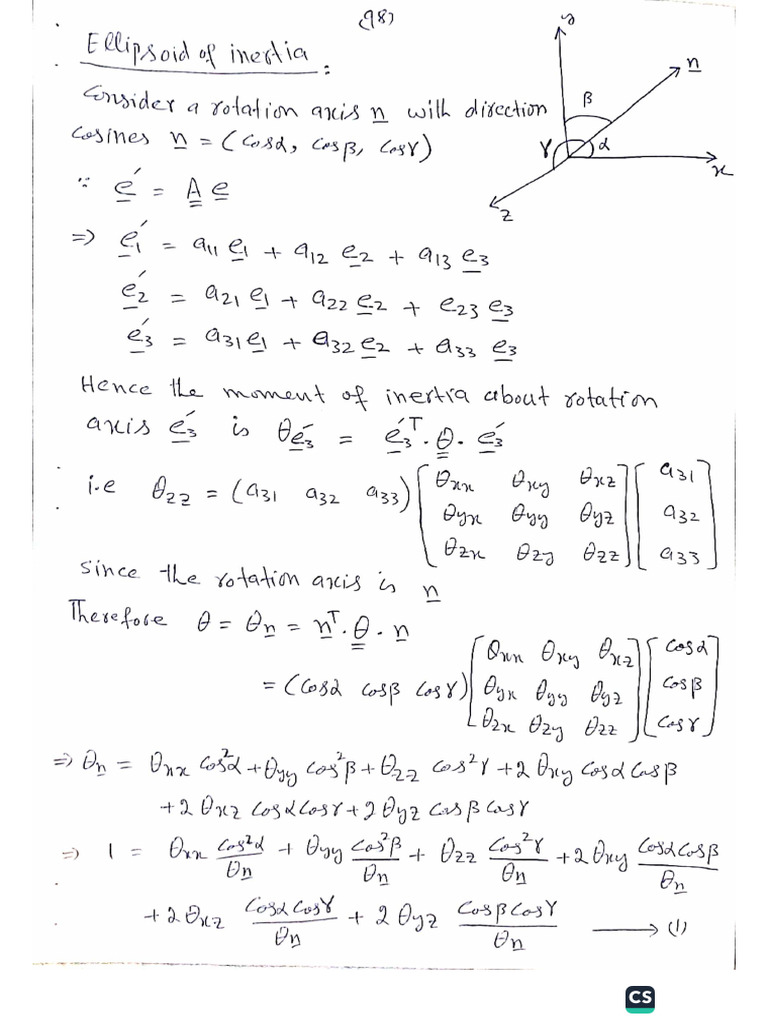 (98)
Ellipsoid of inertia :
y
n
β
γ
α
x
z
Consider a rotation axis n with direction
cosines n = (cosα, cosβ, cosγ)
∵ e′ = A e
⇒ e₁′ = a₁₁ e₁ + a₁₂ e₂ + a₁₃ e₃
e₂′ = a₂₁ e₁ + a₂₂ e₂ + e₂₃ e₃
e₃′ = a₃₁ e₁ + a₃₂ e₂ + a₃₃ e₃
Hence the moment of inertia about rotation
axis e₃′ is θe₃′ = e₃′ᵀ · θ · e₃′
i.e θzz = (a₃₁ a₃₂ a₃₃) [θxx θxy θxz] [a₃₁]
[θyx θyy θyz] [a₃₂]
[θzx θzy θzz] [a₃₃]
since the rotation axis is n
Therefore θ = θn = nᵀ · θ · n
= (cosα cosβ cosγ) [θxx θxy θxz] [cosα]
[θyx θyy θyz] [cosβ]
[θzx θzy θzz] [cosγ]
⇒ θn = θxx cos²α + θyy cos²β + θzz cos²γ + 2 θxy cosα cosβ
+ 2 θxz cosα cosγ + 2 θyz cosβ cosγ
⇒ 1 = θxx cos²α/θn + θyy cos²β/θn + θzz cos²γ/θn + 2 θxy cosα cosβ/θn
+ 2 θxz cosα cosγ/θn + 2 θyz cosβ cosγ/θn ⟶ (1)
CS